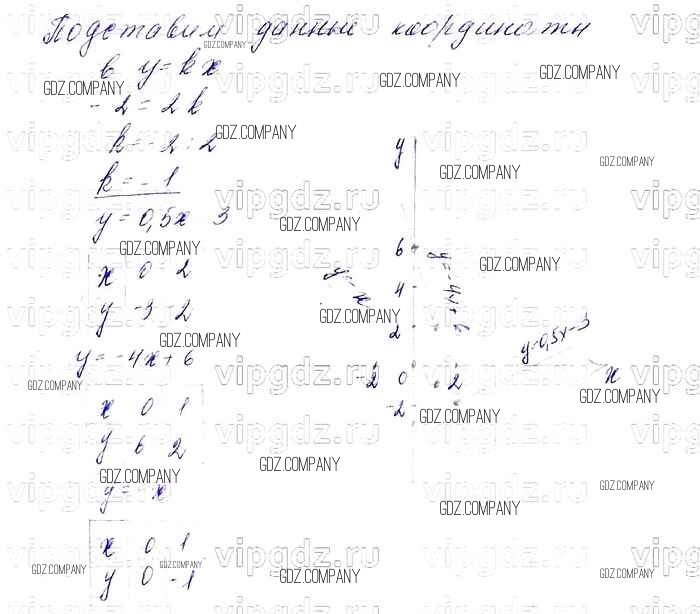 Подставим данные координаты
в y = kx
- 2 = 2k
k = - 2 : 2
k = - 1
y = 0,5x 3
x 0 2
y -3 -2
y = -4x + 6
x 0 1
y 6 2
y = x
x 0 1
y 0 -1
y
6
4
2
-2 0 2
-2
x
y = x
y = -4x + 6
y = 0,5x - 3
vipgdz.ru
GDZ.COMPANY